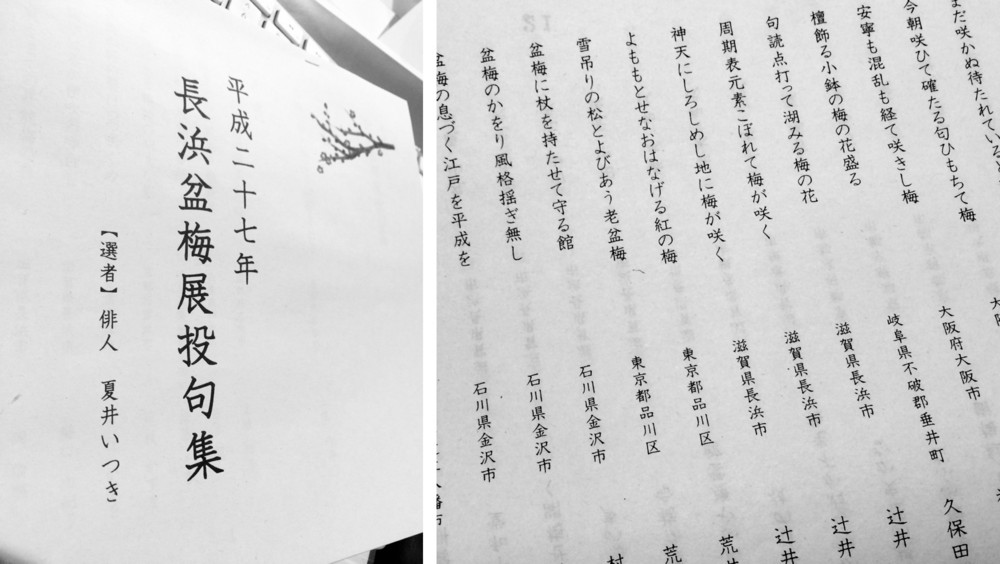 平成二十七年
長浜盆梅展投句集
【選者】俳人 夏井いつき
まだ咲かぬ待たれている
今朝咲ひて確たる匂ひもちて梅 大阪
安寧も混乱も経て咲きし梅 大阪府大阪市
檀飾る小鉢の梅の花盛る 岐阜県不破郡垂井町 久保田
句読点打って湖みる梅の花 滋賀県長浜市 辻井
周期表元素こぼれて梅が咲く 滋賀県長浜市 辻井
神天にしろしめし地に梅が咲く 滋賀県長浜市 辻井
よももとせなおはなげる紅の梅 東京都品川区 荒
雪吊りの松とよびあう老盆梅 東京都品川区 荒
盆梅に杖を持たせて守る館 石川県金沢市 村
盆梅のかをり風格揺ぎ無し 石川県金沢市
盆梅の息づく江戸を平成を 石川県金沢市